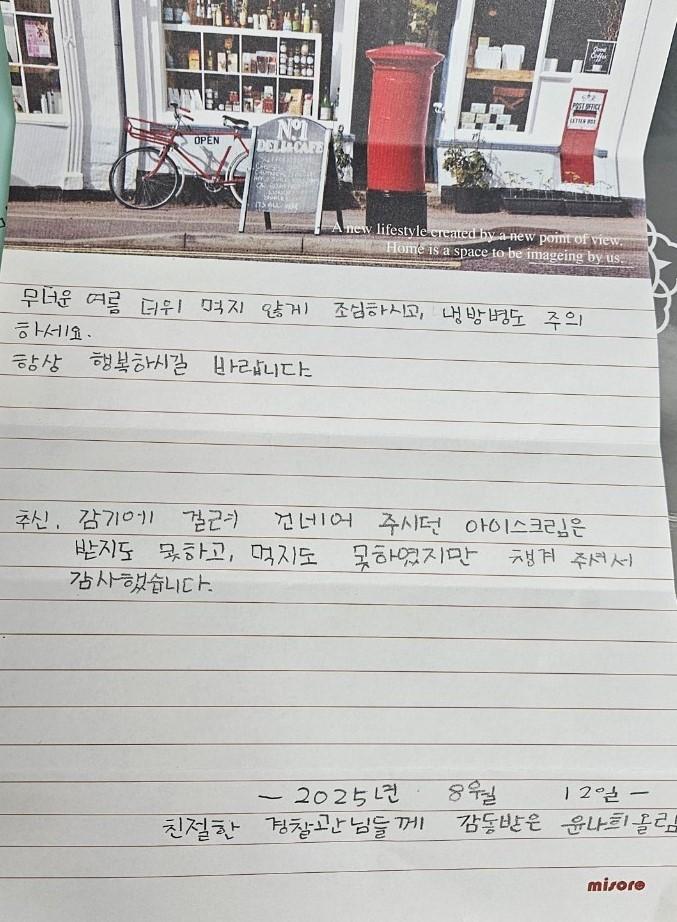 OPEN
No1
DELI & CAFE
POST OFFICE
LETTER BOX
A new lifestyle created by a new point of view.
Home is a space to be imageing by us.
무더운 여름 더위 먹지 않게 조심하시고, 냉방병도 주의
하세요.
항상 행복하시길 바랍니다.
추신. 감기에 걸려 건네어 주시던 아이스크림은
받지도 못하고, 먹지도 못하였지만 챙겨 주셔서
감사했습니다.
- 2025년 8월 12일 -
친절한 경찰관님들께 감동받은 윤나희 올림
misoro